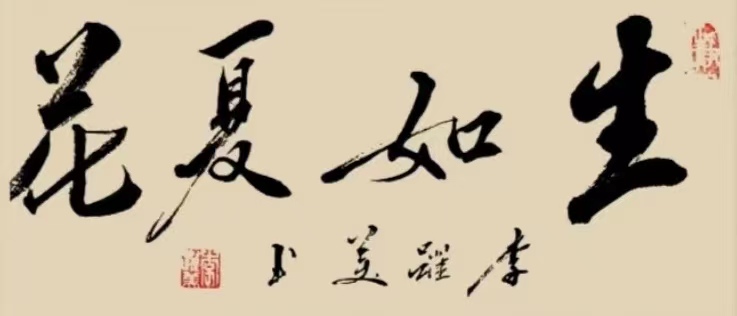 生如夏花
李躍美书